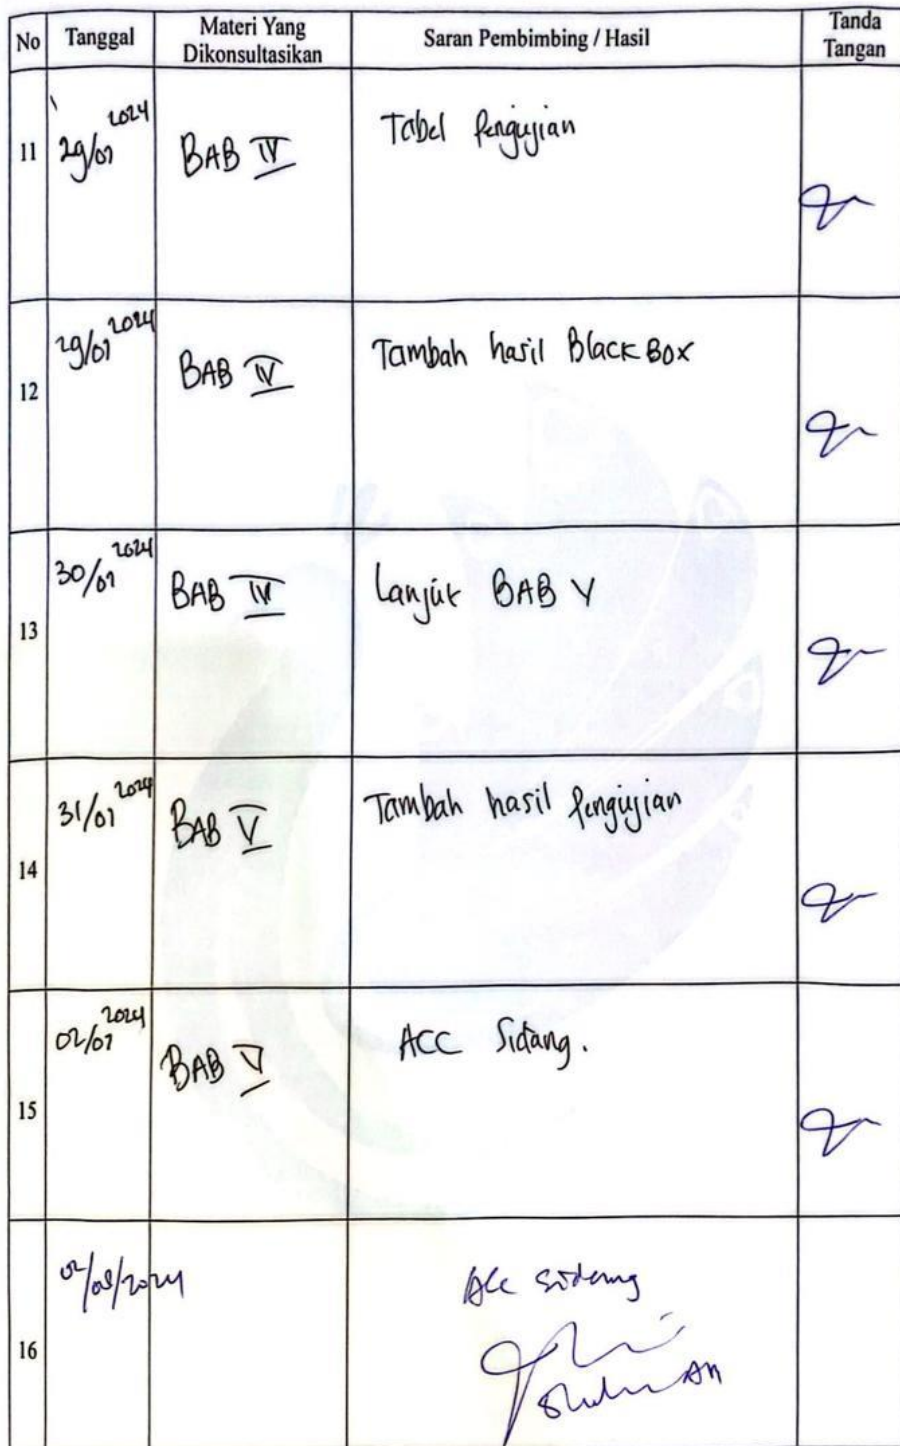 No Tanggal Materi Yang Dikonsultasikan Saran Pembimbing / Hasil Tanda Tangan
11 29/07 2024 BAB IV Tabel Pengujian
12 29/07 2024 BAB IV Tambah hasil Black Box
13 30/07 2024 BAB IV Lanjut BAB V
14 31/07 2024 BAB V Tambah hasil Pengujian
15 02/07 2024 BAB V ACC Sidang.
16 02/08/2024 Acc sidang